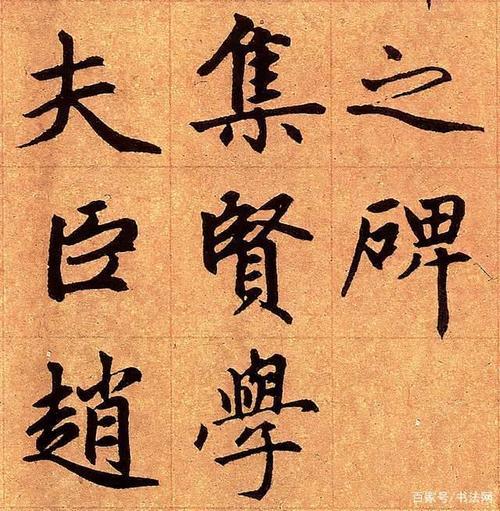 之碑
集賢學
夫臣趙
百家号/书法网